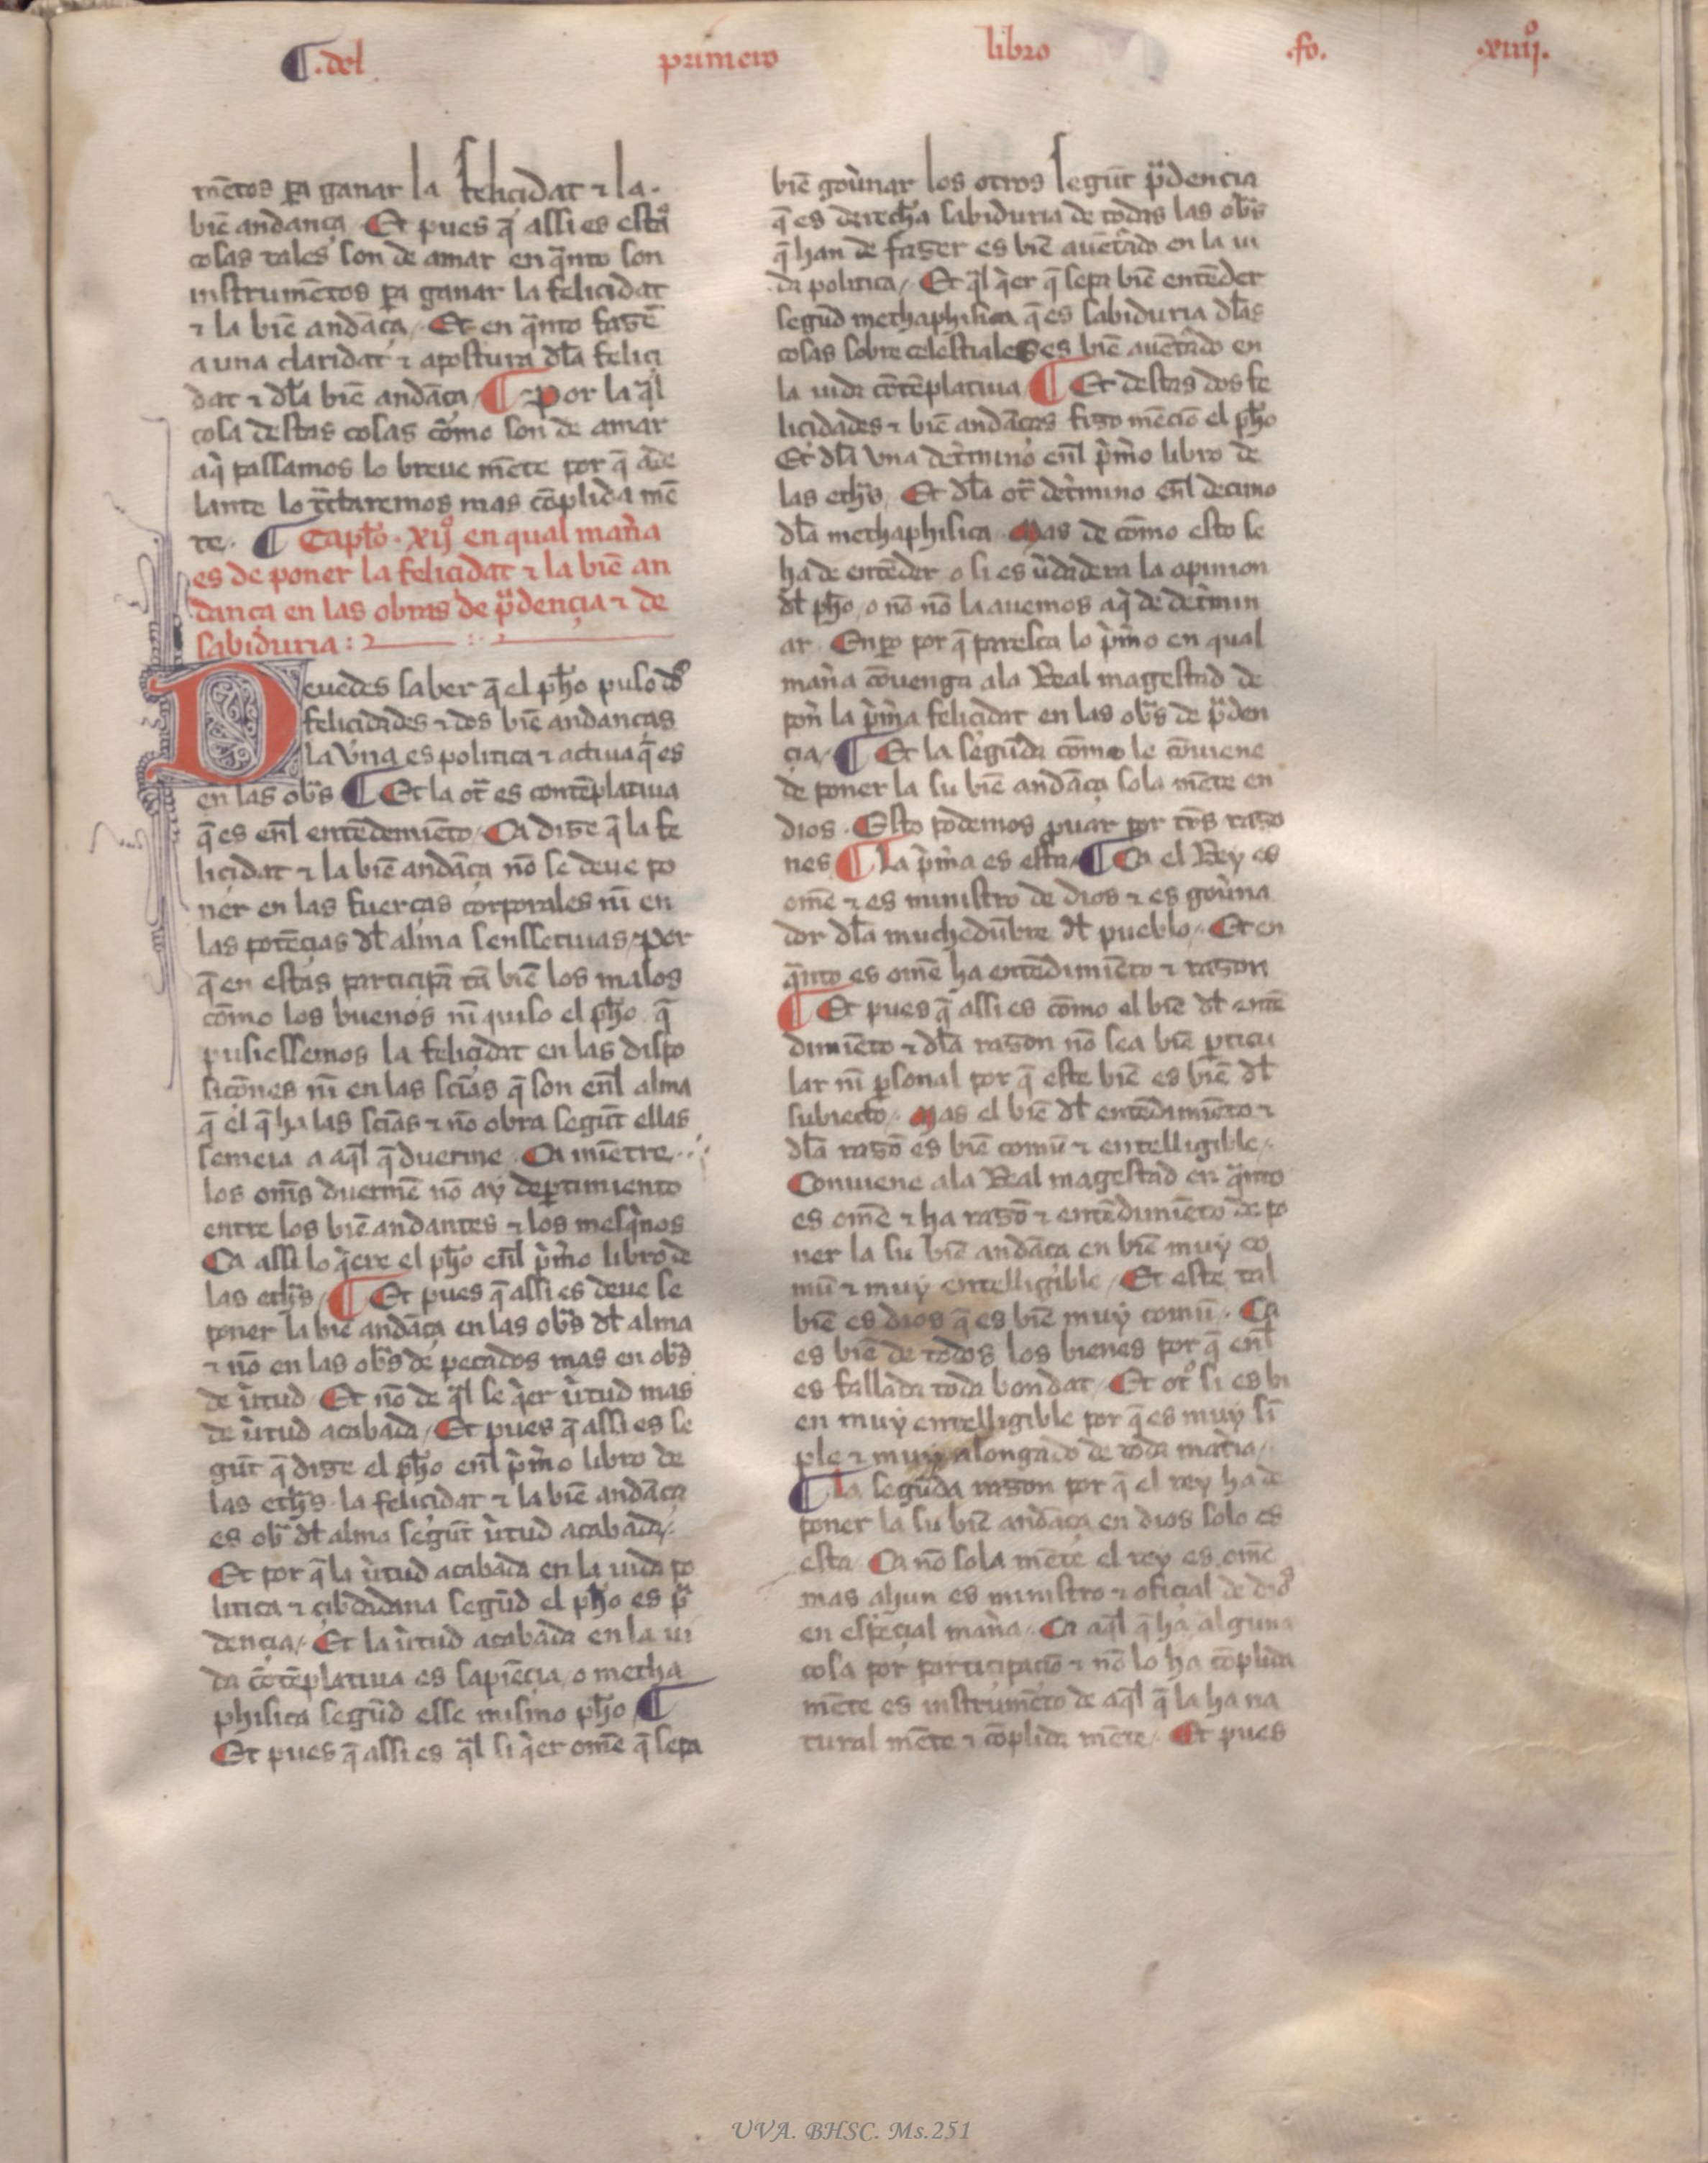 ¶ .del primero libro .fo. .xiiijº.
mẽtos pa ganar la felicidat ⁊ la.
biẽ andança Et pues q̃ assi es estas
cosas tales son de amar en q̃nto son
instrumẽtos pa ganar la felicidat
⁊ la biẽ andãça, Et en q̃nto fazẽ
a una claridat ⁊ apostura dl̃a felici
dat ⁊ dl̃a biẽ andãça ¶ Por la q̃l
cosa destas cosas cõmo son de amar
aq̃ passamos lo breue mẽte por q̃ ade
lante lo tr̃ctaremos mas cõplida mẽ
te. ¶ Capl̃o. xijº en qual mañа
es de poner la felicidat ⁊ la biẽ an
dança en las obras de p̃dençia ⁊ de
sabiduria :
Deuedes saber q̃ el ph̃o puso dos
felicidades ⁊ dos biẽ andanças
la vna es politica ⁊ actiua q̃ es
en las ob̃s ¶ Et la ot̃ es contẽplatiua
q̃ es enl̃ entẽdemiẽto. Ca dize q̃ la fe
licidat ⁊ la biẽ andãça nõ se deue po
ner en las fuerças corporales nĩ en
las potẽçias dl̃ alma senssetiuas, por
q̃ en estas participã tã biẽ los malos
cõmo los buenos nĩ quiso el ph̃o q̃
pusiessemos la felicidat en las dispo
sicõnes nĩ en las sciãs q̃ son enl̃ alma
q̃ el q̃ ha las sciãs ⁊ nõ obra segũt ellas
semeia a aq̃l q̃ duerme. Ca miẽtre
los om̃s duermẽ nõ ay dep̃timiento
entre los biẽ andantes ⁊ los mesq̃nos
Ca assi lo q̃ere el ph̃o enl̃ p̃mo libro de
las eth̃s, ¶ Et pues q̃ assi es deue se
poner la biẽ andãça en las ob̃s dl̃ alma
⁊ nõ en las ob̃s de pecados mas en ob̃s
de ṽtud. Et nõ de q̃l se q̃er ṽtud mas
de ṽtud acabada, Et pues q̃ assi es se
gũt q̃ dize el ph̃o enl̃ p̃mo libro de
las eth̃s. la felicidat ⁊ la biẽ andãça
es ob̃ dl̃ alma segũt ṽtud acabada,
Et por q̃ la ṽtud acabada en la uida po
litica ⁊ çibdadana segũd el ph̃o es p̃
dençia, Et la ṽtud acabada en la ui
da cõtẽplatiua es sapiẽçia, o metha
phisica segũd esse mismo ph̃o, ¶
Et pues q̃ assi es q̃l si q̃er omẽ q̃ sepa
biẽ goũnar los otros segũt p̃dencia
q̃ es derecha sabiduria de todas las ob̃s
q̃ han de fazer es biẽ auẽt̃ado en la ui
da politica, Et q̃l q̃er q̃ sepa biẽ entẽder
segũd methaphisica q̃ es sabiduria dl̃as
cosas sobre celestiales es biẽ auẽt̃ado en
la uida cõtẽplatiua, ¶ Et destas dos fe
licidades ⁊ biẽ andãças fizo mẽciõ el ph̃o
Et dl̃a vna det̃mino enl̃ p̃mo libro de
las eth̃s, Et dl̃a ot̃ det̃mino enl̃ decimo
dl̃a methaphisica. Mas de cõmo esto se
ha de entẽder, o si es ũdadera la opinion
dl̃ ph̃o, o nõ nõ la auemos aq̃ de det̃min
ar. Enp̃o por q̃ paresca lo p̃mo en qual
mañа cõuenga ala Real magestad de
poñ la p̃ma felicidat en las ob̃s de p̃den
çia, ¶ Et la segũda cõmo le cõuiene
de poner la su biẽ andãça sola mẽte en
dios. Esto podemos ꝓuar por tr̃s razo
nes ¶ La p̃ma es esta, ¶ Ca el Rey es
omẽ ⁊ es ministro de dios ⁊ es goũna
dor dl̃a muchedũbre dl̃ pueblo, Et en
q̃nto es omẽ ha entẽdimiẽto ⁊ razon
¶ Et pues q̃ assi es cõmo el biẽ dl̃ entẽ
dimiẽto ⁊ dl̃a razon nõ sea biẽ p̃ticu
lar nĩ p̃sonal por q̃ este biẽ es biẽ dl̃
subiecto, Mas el biẽ dl̃ entẽdimiẽto ⁊
dl̃a razõ es biẽ comũ ⁊ entelligible,
Conuiene ala Real magestad en q̃nto
es omẽ ⁊ ha razõ ⁊ entẽdimiẽto de po
ner la su biẽ andãça en biẽ muy co
mũ ⁊ muy entelligible, Et este tal
biẽ es dios q̃ es biẽ muy comũ. Ca
es biẽ de todos los bienes por q̃ enl̃
es fallada toda bondat, Et otº si es bi
en muy entelligible por q̃ es muy sĩ
ple ⁊ muy alongado de toda mat̃ia,
¶ La segũda razon por q̃ el rey ha de
poner la su biẽ andãça en dios solo es
esta. Ca nõ sola mẽte el rey es omẽ
mas ahun es ministro ⁊ oficial de dios
en espeçial mañа, Ca aq̃l q̃ ha alguna
cosa por participaciõ ⁊ nõ lo ha cõplida
mẽte es instrumẽto de aq̃l q̃ la ha na
tural mẽte ⁊ cõplida mẽte, Et pues
UVA. BHSC. Ms.251